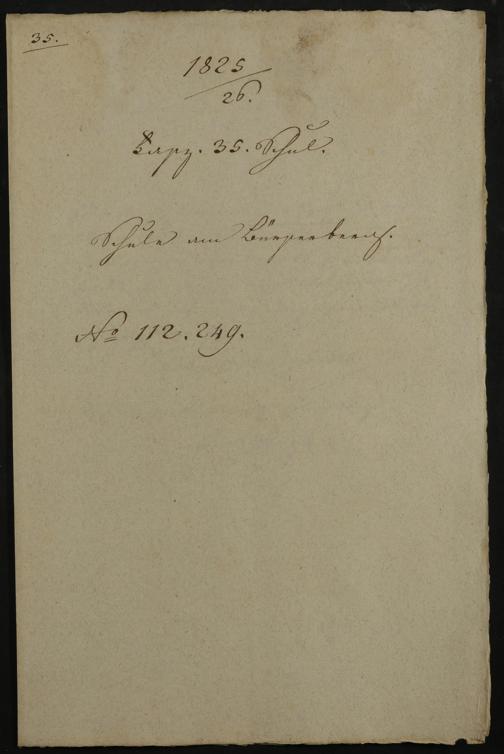 35.
1825
26.
35. Schul.
Schule am
No 112. 249.